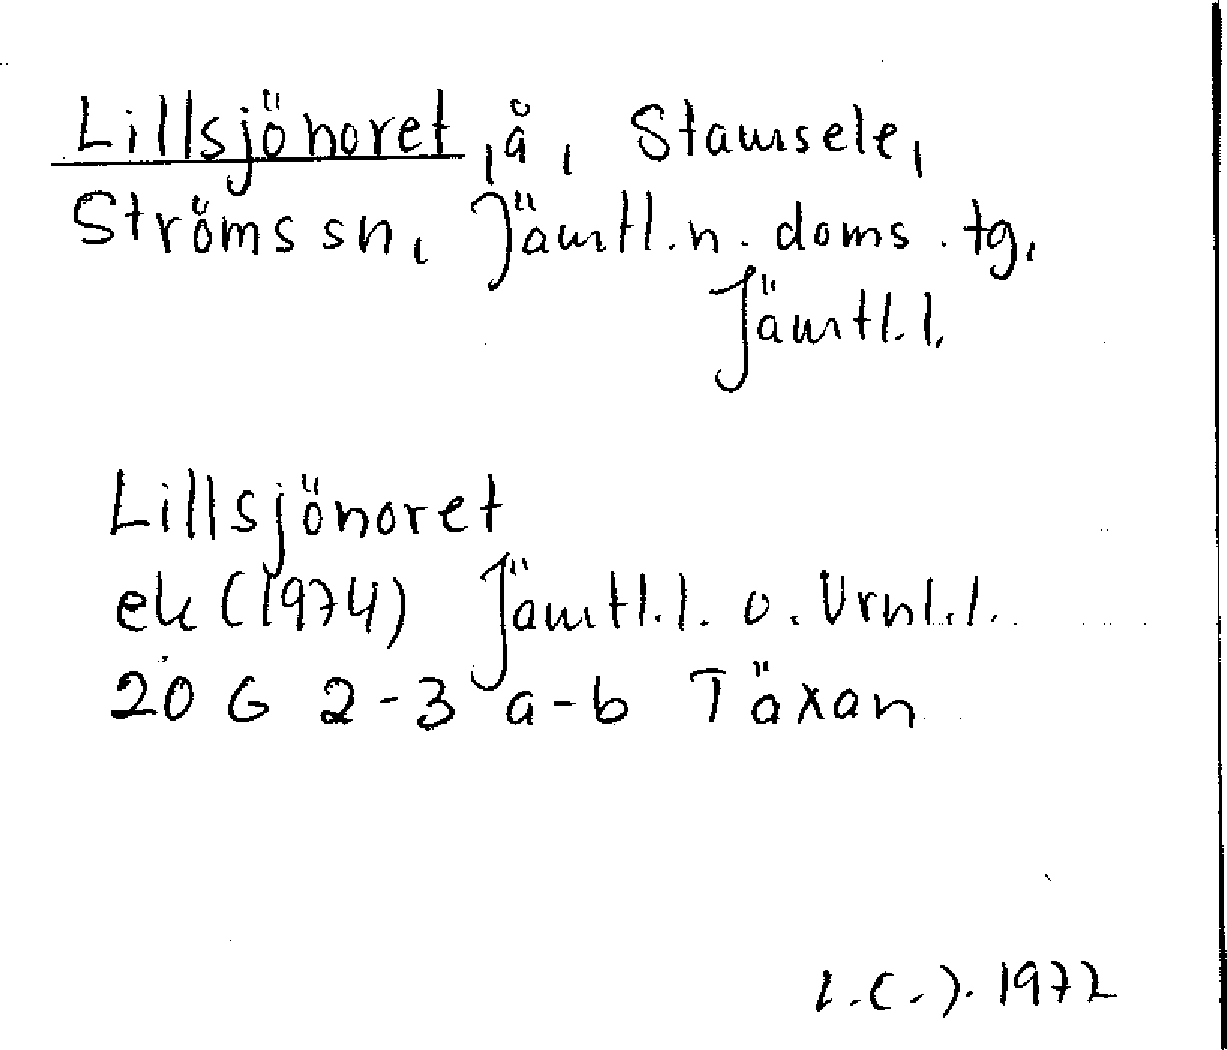 Lillsjönoret, å, Stamsele,
Ströms sn, Jämtl.n. doms. tg,
Jämtl.l.
Lillsjönoret
ek (1974) Jämtl.l. o. Vrnl.l.
20 G 2-3 a-b Täxan
1972